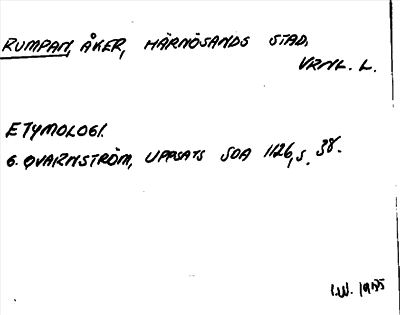 RUMPAN, ÅKER, HÄRNÖSANDS STAD.
VRNL. L.
ETYMOLOGI.
G. QVARNSTRÖM, UPPSATS SOA 1126, s. 38.
I.W. 1975